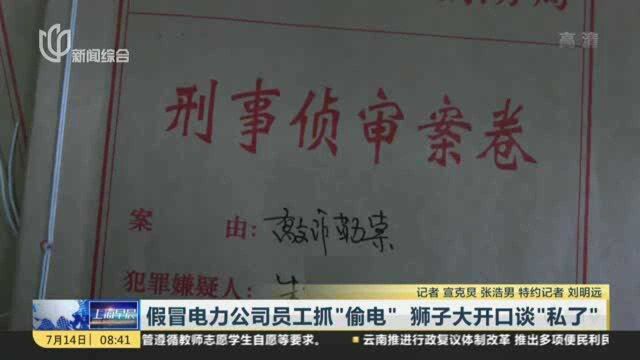 新闻综合
高清
刑事侦审案卷
案 由: 敲诈勒索
犯罪嫌疑人:
记者 宣克炅 张浩男 特约记者 刘明远
上海早晨
假冒电力公司员工抓"偷电" 狮子大开口谈"私了"
7月14日 08:41 管遵循教师志愿学生自愿等要求。 云南推进行政复议体制改革,推出多项便民利民